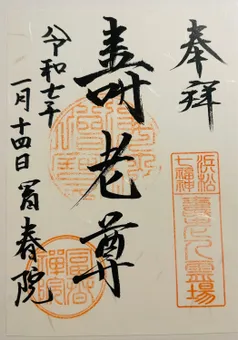 奉拝
浜松
七福神
霊場
壽老尊
令和七年
一月十四日
冨春院